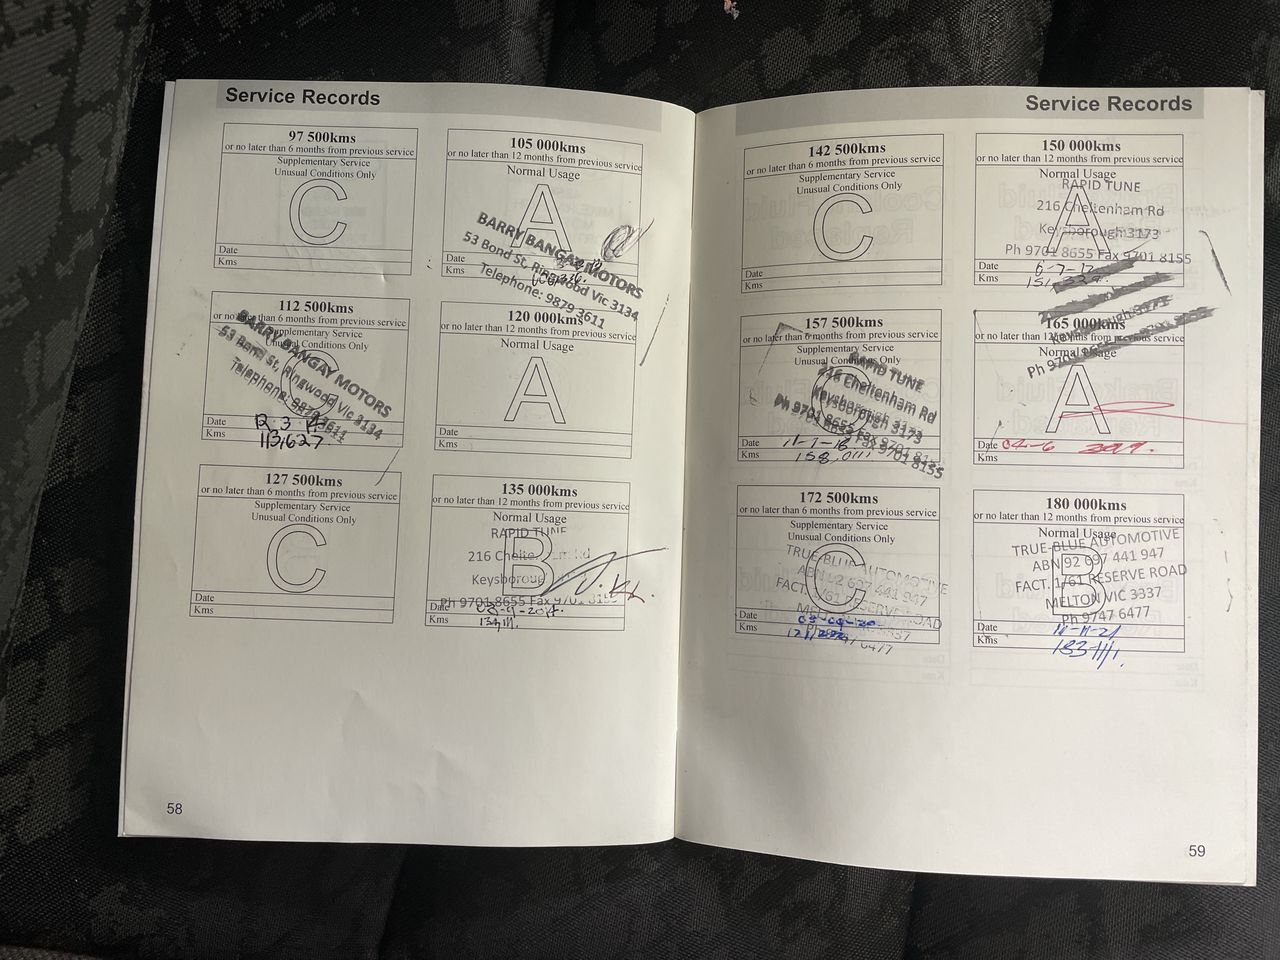 Service Records
97 500kms
or no later than 6 months from previous service
Supplementary Service
Unusual Conditions Only
C
Date
Kms
105 000kms
or no later than 12 months from previous service
Normal Usage
A
BARRY BANGAY MOTORS
53 Bond St, Ringwood Vic 3134
Telephone: 9879 3611
Date
Kms
112 500kms
or no later than 6 months from previous service
Supplementary Service
Unusual Conditions Only
C
BARRY BANGAY MOTORS
53 Bond St, Ringwood Vic 3134
Telephone: 9879 3611
Date 12. 3. 14
Kms 113,627
120 000kms
or no later than 12 months from previous service
Normal Usage
A
Date
Kms
127 500kms
or no later than 6 months from previous service
Supplementary Service
Unusual Conditions Only
C
Date
Kms
135 000kms
or no later than 12 months from previous service
Normal Usage
B
RAPID TUNE
216 Cheltenham Rd
Keysborough 3173
Ph 9701 8655 Fax 9701 8155
Date
Kms
58
Service Records
142 500kms
or no later than 6 months from previous service
Supplementary Service
Unusual Conditions Only
C
Date
Kms
150 000kms
or no later than 12 months from previous service
Normal Usage
A
RAPID TUNE
216 Cheltenham Rd
Keysborough 3173
Ph 9701 8655 Fax 9701 8155
Date 6-7-17
Kms
157 500kms
or no later than 6 months from previous service
Supplementary Service
Unusual Conditions Only
C
RAPID TUNE
216 Cheltenham Rd
Keysborough 3173
Ph 9701 8655 Fax 9701 8155
Date 11-7-18
Kms 158,011
165 000kms
or no later than 12 months from previous service
Normal Usage
A
Keysborough 3173
Date 04-6
Kms
172 500kms
or no later than 6 months from previous service
Supplementary Service
Unusual Conditions Only
C
TRUE-BLUE AUTOMOTIVE
ABN 92 697 441 947
FACT. 1/61 RESERVE ROAD
MELTON VIC 3337
Ph 9747 6477
Date 03-09-20
Kms
180 000kms
or no later than 12 months from previous service
Normal Usage
B
TRUE-BLUE AUTOMOTIVE
ABN 92 697 441 947
FACT. 1/61 RESERVE ROAD
MELTON VIC 3337
Ph 9747 6477
Date 11-11-21
Kms 183111.
59